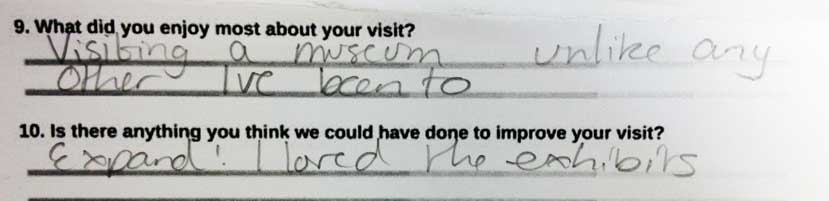 9. What did you enjoy most about your visit?
Visiting a museum unlike any
Other Ive been to
10. Is there anything you think we could have done to improve your visit?
Expand! I loved the exhibits